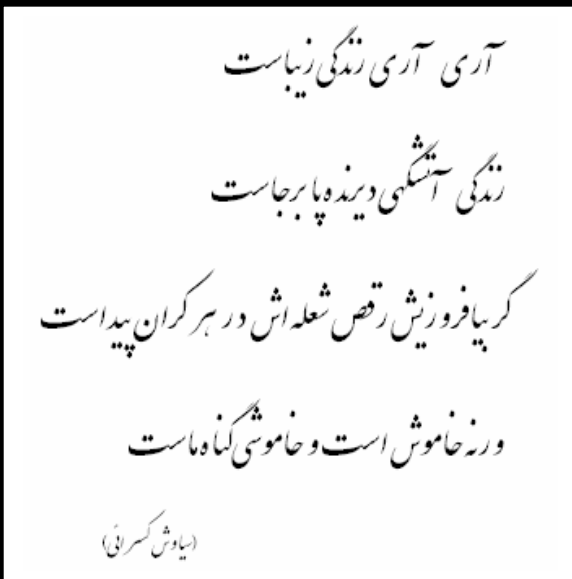 آری آری زندگی زیباست
زندگی آتشگهی دیرنده پا برجاست
گر بیافروزیش رقص شعله اش در هر کران پیداست
ورنه خاموش است و خاموشی گناه ماست
(سیاوش کسرائی)